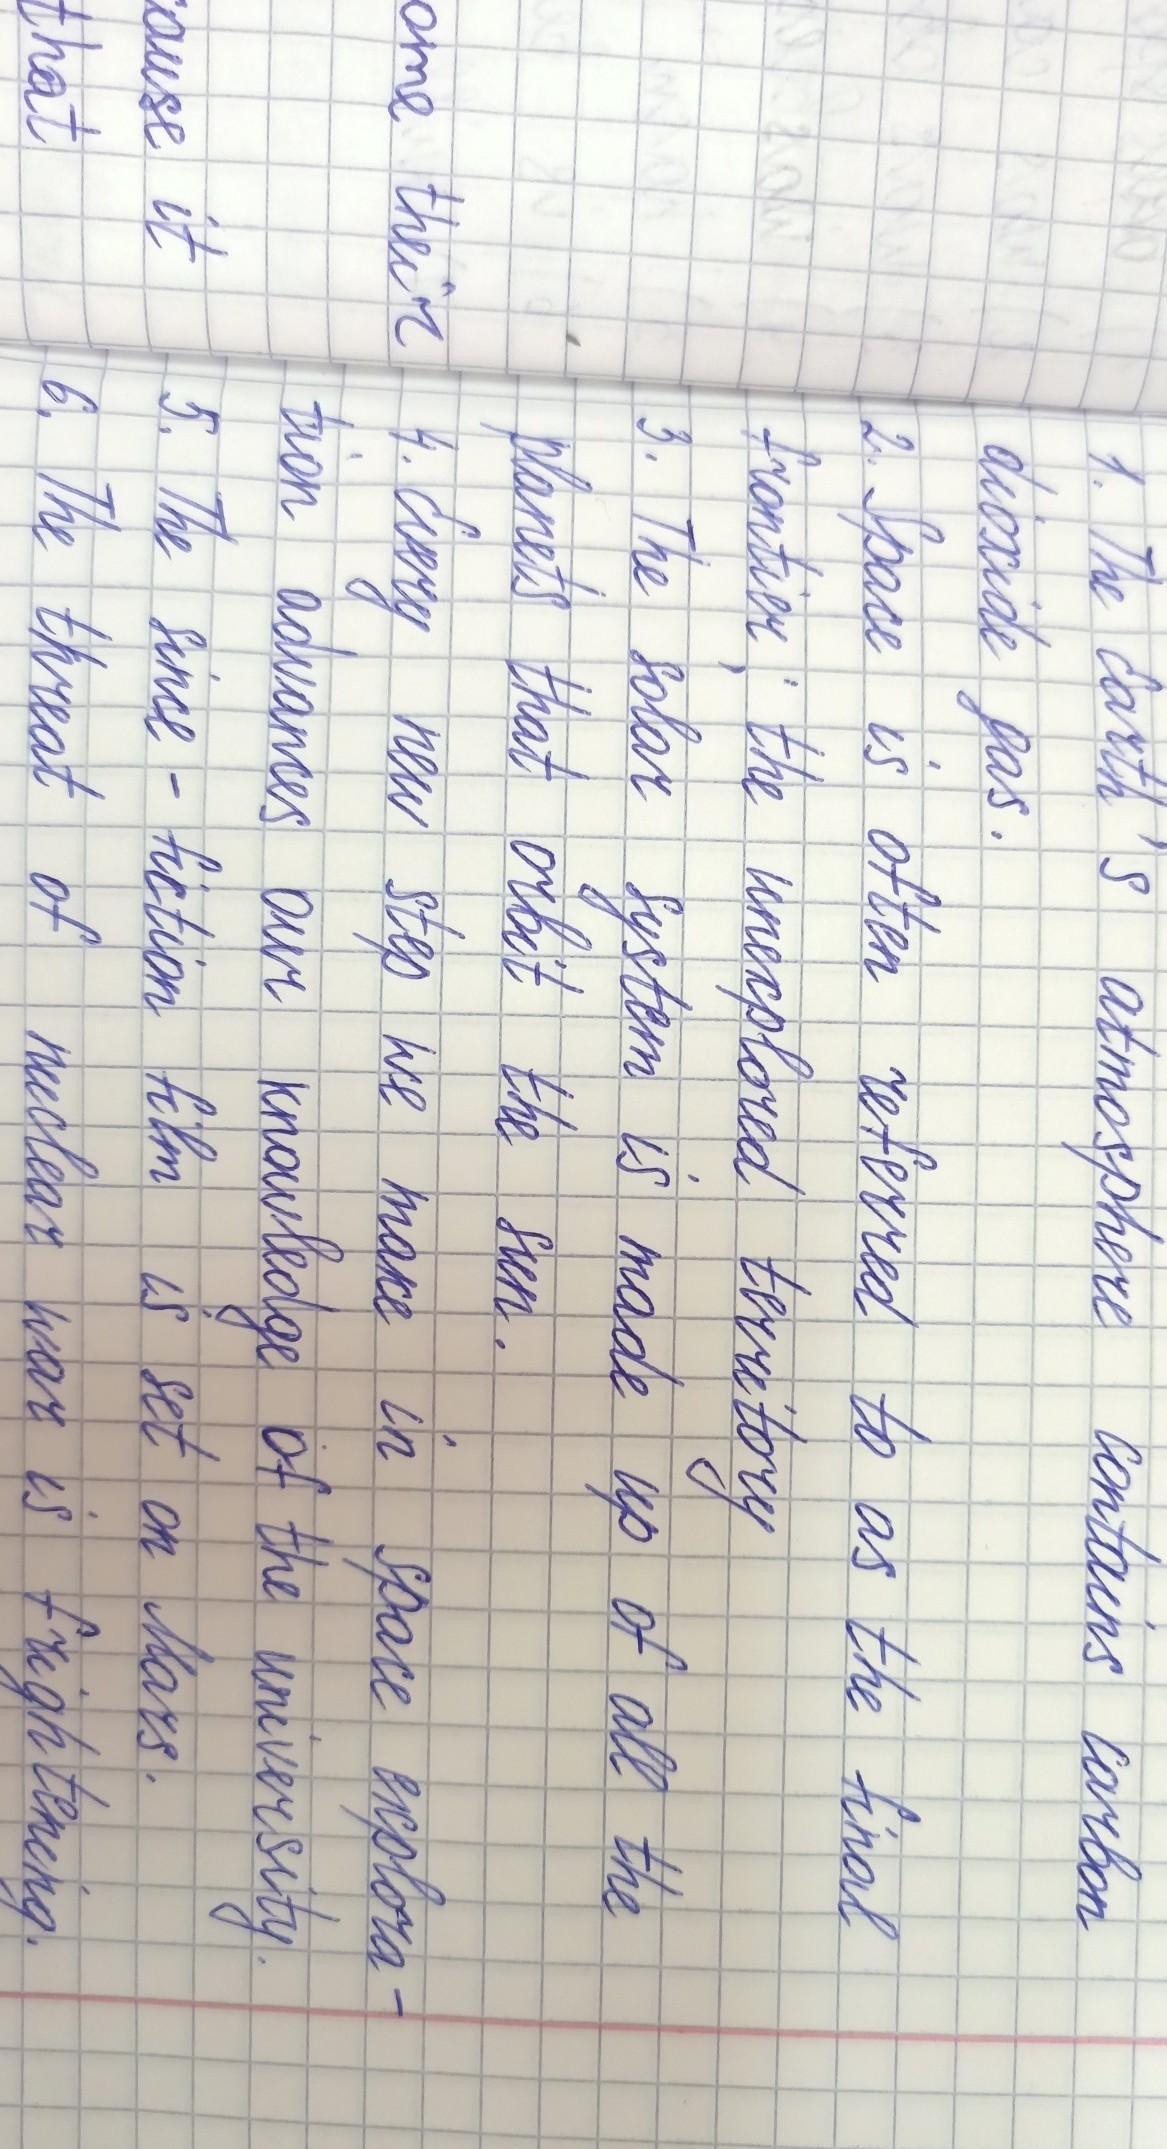 ome their
cause it
that
1. The Earth's atmosphere contains carbon
dioxide gas.
2. Space is often referred to as the final
frontier; the unexplored terretory
3. The solar system is made up of all the
planets that orbit the sun.
4. Every new step we make in space explora-
tion advances our knowledge of the university.
5. The since-fiction film is set on Mars.
6. The threat of nuclear war is frightening.